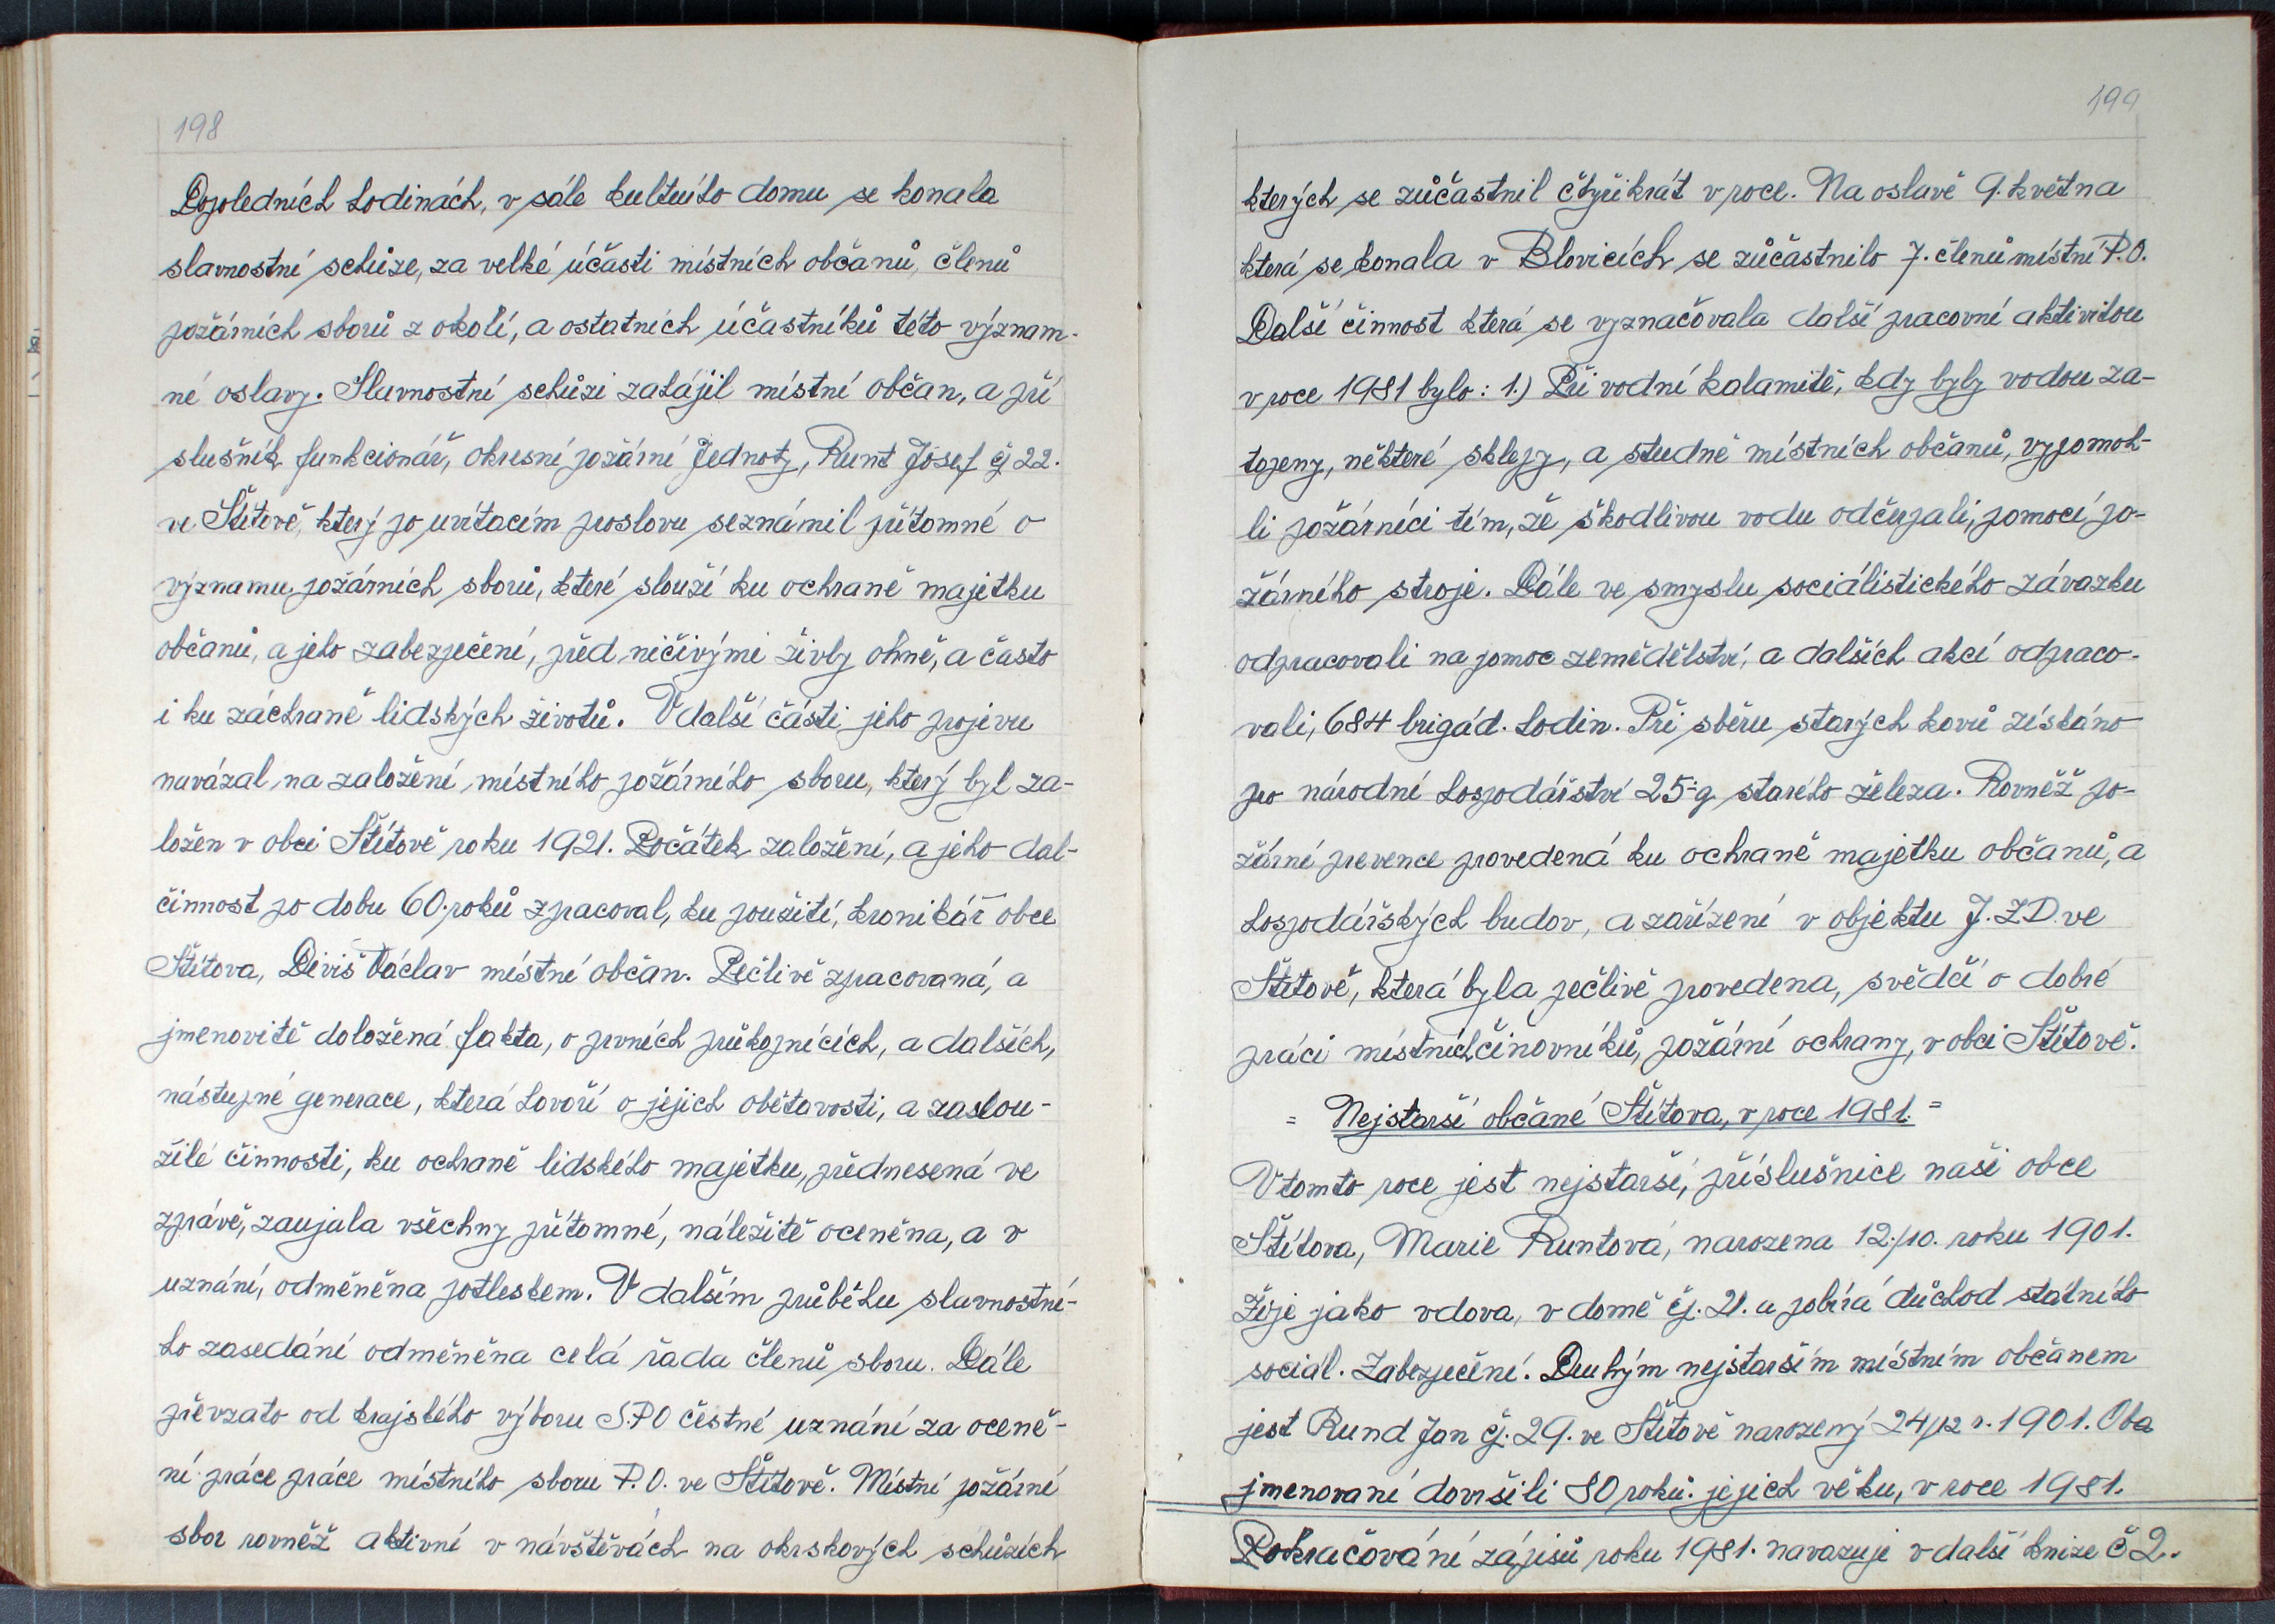 198
Dopoledních hodinách, v sále kultuího domu se konala
slavnostní schůze, za velké účasti místních občanů, členů
požárních sborů z okolí, a ostatních účastníků této význam-
né oslavy. Slavnostní schůzi zahájil místní občan, a pří
slušník funkcionář, okresní požární Jednoty, Runt Josef čj 22.
ve Štítově, který po uvítacím proslovu seznámil přítomné o
významu požárních sborů, které slouží ku ochraně majetku
občanů, a jeho zabezpečení, před ničivými živly ohně, a často
i ku záchraně lidských životů. V další části jeho projevu
navázal na založení místního požárního sboru, který byl za-
ložen v obci Štítově roku 1921. Počátek založení, a jeho dal-
činnost po dobu 60. roků zpracoval, ku použití, kronikář obce
Štítova, Diviš Václav místní občan. Pečlivě zpracovaná, a
jmenovitě doložená fakta, o prvních průkopnících, a dalších,
nástupné generace, která hovoří o jejich obětavosti, a zaslou-
žilé činnosti, ku ochraně lidského majetku, přednesená ve
zprávě, zaujala všechny přítomné, náležitě oceněna, a v
uznání, odměněna potleskem. V dalším průběhu slavnostní-
ho zasedání odměněna celá řada členů sboru. Dále
převzato od krajského výboru S.P.O čestné uznání za oceně-
ní práce práce místního sboru P.O. ve Štítově. Místní požární
sbor rovněž aktivní v návštěvách na okrskových schůzích
199
kterých se zůčastnil čtyřikrát v roce. Na oslavě 9. května
která se konala v Blovicích se zůčastnilo 7. členů místní P.O.
Další činnost která se vyznačovala další pracovní aktivitou
v roce 1981 bylo: 1.) Při vodní kalamitě, kdy byly vodou za-
topeny, některé sklepy, a studně místních občanů, vypomoh-
li požárníci tím, že škodlivou vodu odčerpali, pomocí po-
žárního stroje. Dále ve smyslu sociálistického závazku
odpracovali na pomoc zemědělství, a dalších akcí odpraco-
vali, 684 brigád. hodin. Při sběru starých kovů získáno
pro národní hospodářství 25-q starého železa. Rovněž po-
žární prevence provedená ku ochraně majetku občanů, a
hospodářských budov, a zařízení v objektu J.Z.D. ve
Štítově, která byla pečlivě provedena, svědčí o dobré
práci místních činovníků, požární ochrany, v obci Štítově.
= Nejstarší občané Štítova, v roce 1981. =
V tomto roce jest nejstarší, příslušnice naší obce
Štítova, Marie Runtová, narozena 12./10. roku 1901.
Žije jako vdova, v domě čj. 21. a pobírá důchod státního
sociál. Zabezpečení. Druhým nejstarším místním občanem
jest Rund Jan čj. 29. ve Štítově narozený 24/12 r. 1901. Oba
jmenovaní dovršili 80 roků. jejich věku, v roce 1981.
Pokračování zápisů roku 1981. navazuje v další knize č 2.